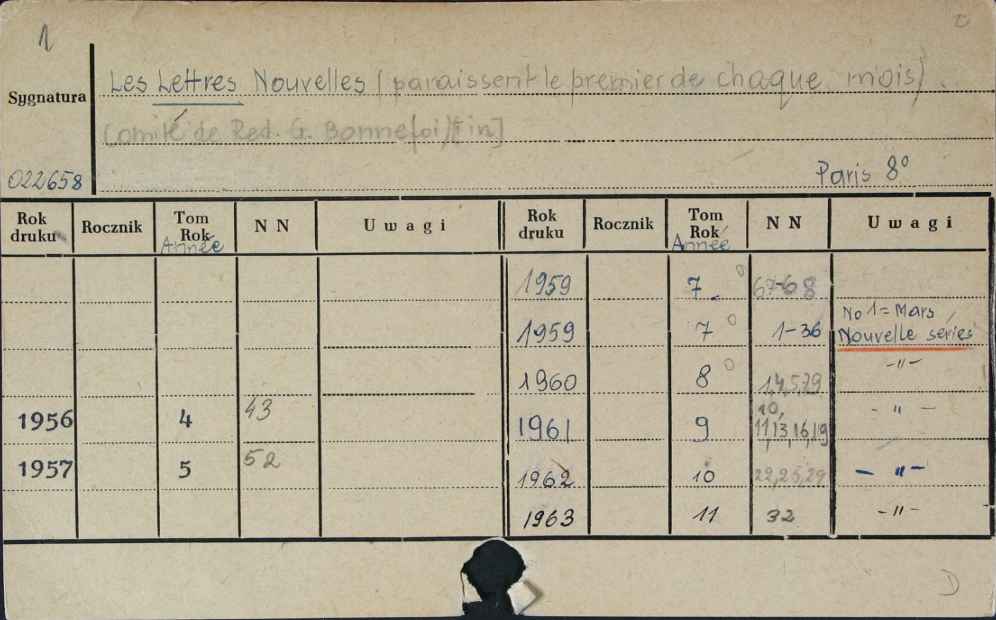 1
Les Lettres Nouvelles (paraissent le premier de chaque mois).
Sygnatura
Comité de Red. G. Bonnefoi
022658
Paris 8°
Rok druku Rocznik Tom Rok Année NN Uwagi Rok druku Rocznik Tom Rok Année NN Uwagi
1959 7 67-68
No 1 = Mars
1959 7 1-36 Nouvelle series
1960 8 -"-
1956 4 43 1961 9 10, 11,13,16,19 - " -
1957 5 52 1962 10 22,25,29 - " -
1963 11 32 -"-
D